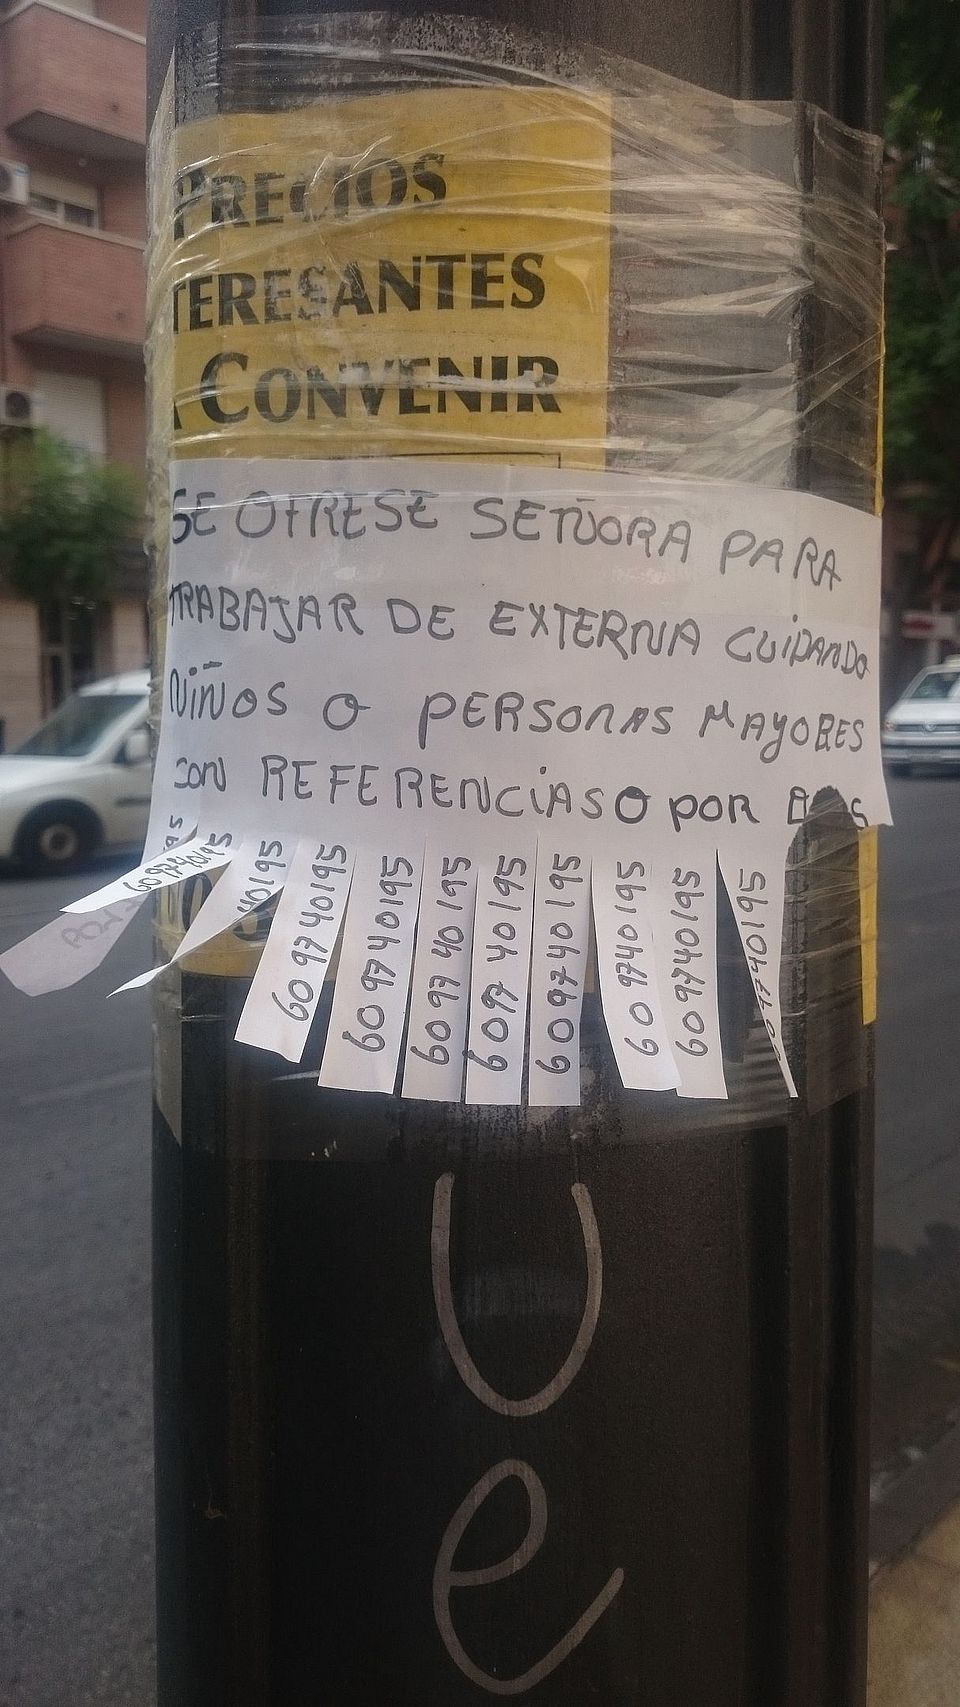 PRECIOS
TERESANTES
A CONVENIR
SE OFRESE SEÑORA PARA
TRABAJAR DE EXTERNA CUIDANDO
NIÑOS O PERSONAS MAYORES
CON REFERENCIAS O POR
609740195
609740195
40195
609740195
609740195
609740195
609740195
609740195
609740195
609740195
609740195
U
e